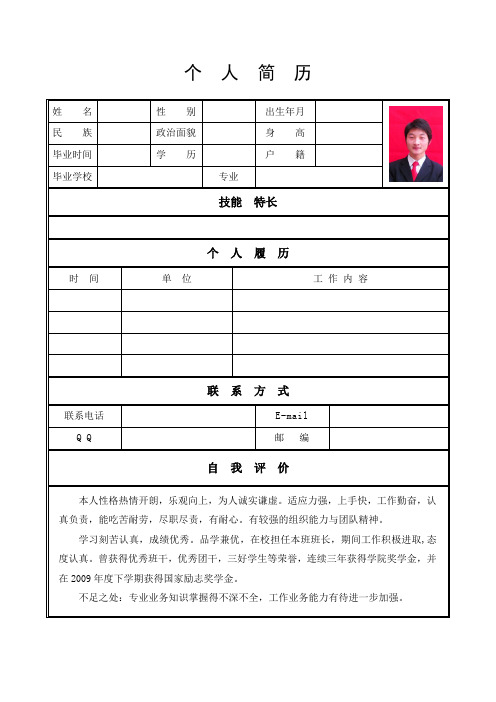 个 人 简 历
姓 名 性 别 出生年月
民 族 政治面貌 身 高
毕业时间 学 历 户 籍
毕业学校 专业
技能 特长
个 人 履 历
时 间 单 位 工 作 内 容
联 系 方 式
联系电话 E-mail
Q Q 邮 编
自 我 评 价
本人性格热情开朗，乐观向上，为人诚实谦虚。适应力强，上手快，工作勤奋，认
真负责，能吃苦耐劳，尽职尽责，有耐心。有较强的组织能力与团队精神。
学习刻苦认真，成绩优秀。品学兼优，在校担任本班班长，期间工作积极进取,态
度认真。曾获得优秀班干，优秀团干，三好学生等荣誉，连续三年获得学院奖学金，并
在 2009 年度下学期获得国家励志奖学金。
不足之处：专业业务知识掌握得不深不全，工作业务能力有待进一步加强。